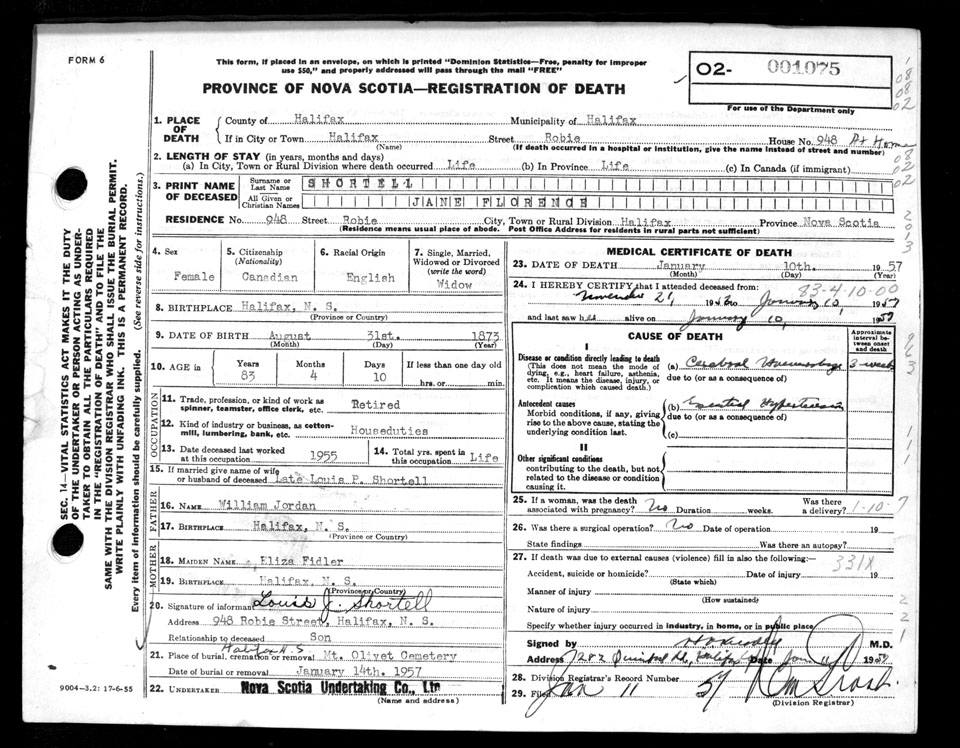 FORM 6
This form, if placed in an envelope, on which is printed "Dominion Statistics—Free, penalty for improper
use $50," and properly addressed will pass through the mail "FREE"
PROVINCE OF NOVA SCOTIA—REGISTRATION OF DEATH
O2- 001075
For use of the Department only
SEC. 14—VITAL STATISTICS ACT MAKES IT THE DUTY
OF THE UNDERTAKER OR PERSON ACTING AS UNDER-
TAKER TO OBTAIN ALL THE PARTICULARS REQUIRED
IN THE "REGISTRATION OF DEATH" AND TO FILE THE
SAME WITH THE DIVISION REGISTRAR WHO SHALL ISSUE THE BURIAL PERMIT.
WRITE PLAINLY WITH UNFADING INK. THIS IS A PERMANENT RECORD.
Every item of information should be carefully supplied. (See reverse side for instructions.)
1. PLACE OF DEATH County of Halifax Municipality of Halifax
If in City or Town Halifax Street Robie House No. 948 At Home
(Name) (If death occurred in a hospital or institution, give the name instead of street and number)
2. LENGTH OF STAY (in years, months and days)
(a) In City, Town or Rural Division where death occurred Life (b) In Province Life (c) In Canada (if immigrant)
3. PRINT NAME OF DECEASED Surname or Last Name SHORTELL
All Given or Christian Names JANE FLORENCE
RESIDENCE No. 948 Street Robie City, Town or Rural Division Halifax Province Nova Scotia
(Residence means usual place of abode. Post Office Address for residents in rural parts not sufficient)
4. Sex Female
5. Citizenship (Nationality) Canadian
6. Racial Origin English
7. Single, Married, Widowed or Divorced (write the word) Widow
8. BIRTHPLACE Halifax, N. S.
(Province or Country)
9. DATE OF BIRTH August 31st. 1873
(Month) (Day) (Year)
10. AGE in Years 83 Months 4 Days 10 If less than one day old hrs. or min.
OCCUPATION
11. Trade, profession, or kind of work as spinner, teamster, office clerk, etc. Retired
12. Kind of industry or business, as cotton-mill, lumbering, bank, etc. Houseduties
13. Date deceased last worked at this occupation 1955
14. Total yrs. spent in this occupation Life
15. If married give name of wife or husband of deceased Late Louis P. Shortell
FATHER
16. NAME William Jordan
17. BIRTHPLACE Halifax, N. S.
(Province or Country)
MOTHER
18. MAIDEN NAME Eliza Fidler
19. BIRTHPLACE Halifax, N. S.
(Province or Country)
20. Signature of informant Louis J. Shortell
Address 948 Robie Street, Halifax, N. S.
Relationship to deceased Son
Halifax N.S
21. Place of burial, cremation or removal Mt. Olivet Cemetery
Date of burial or removal January 14th. 1957
22. UNDERTAKER Nova Scotia Undertaking Co., Ltd
(Name and address)
9004-3.2: 17-6-55
MEDICAL CERTIFICATE OF DEATH
23. DATE OF DEATH January 10th. 1957
(Month) (Day) (Year)
24. I HEREBY CERTIFY that I attended deceased from:
83-4-10-00
November 21, 1956 to January 10, 1957
and last saw h alive on January 10, 1957
CAUSE OF DEATH
Approximate interval between onset and death
I
Disease or condition directly leading to death
(This does not mean the mode of dying, e.g., heart failure, asthenia, etc. It means the disease, injury, or complication which caused death.)
(a) Cerebral Haemorrhage 3 weeks
due to (or as a consequence of)
Antecedent causes
Morbid conditions, if any, giving rise to the above cause, stating the underlying condition last.
(b) Essential Hypertension
due to (or as a consequence of)
(c)
II
Other significant conditions
contributing to the death, but not related to the disease or condition causing it.
25. If a woman, was the death associated with pregnancy? No Duration weeks. Was there a delivery?
1-10-7
26. Was there a surgical operation? No Date of operation 19
State findings Was there an autopsy?
27. If death was due to external causes (violence) fill in also the following:—
331X
Accident, suicide or homicide? Date of injury 19
(State which)
Manner of injury
(How sustained)
Nature of injury
Specify whether injury occurred in industry, in home, or in public place
Signed by M.D.
Address Halifax Date Jan 11 1957
28. Division Registrar's Record Number
29. Filed Jan 11 57
(Division Registrar)